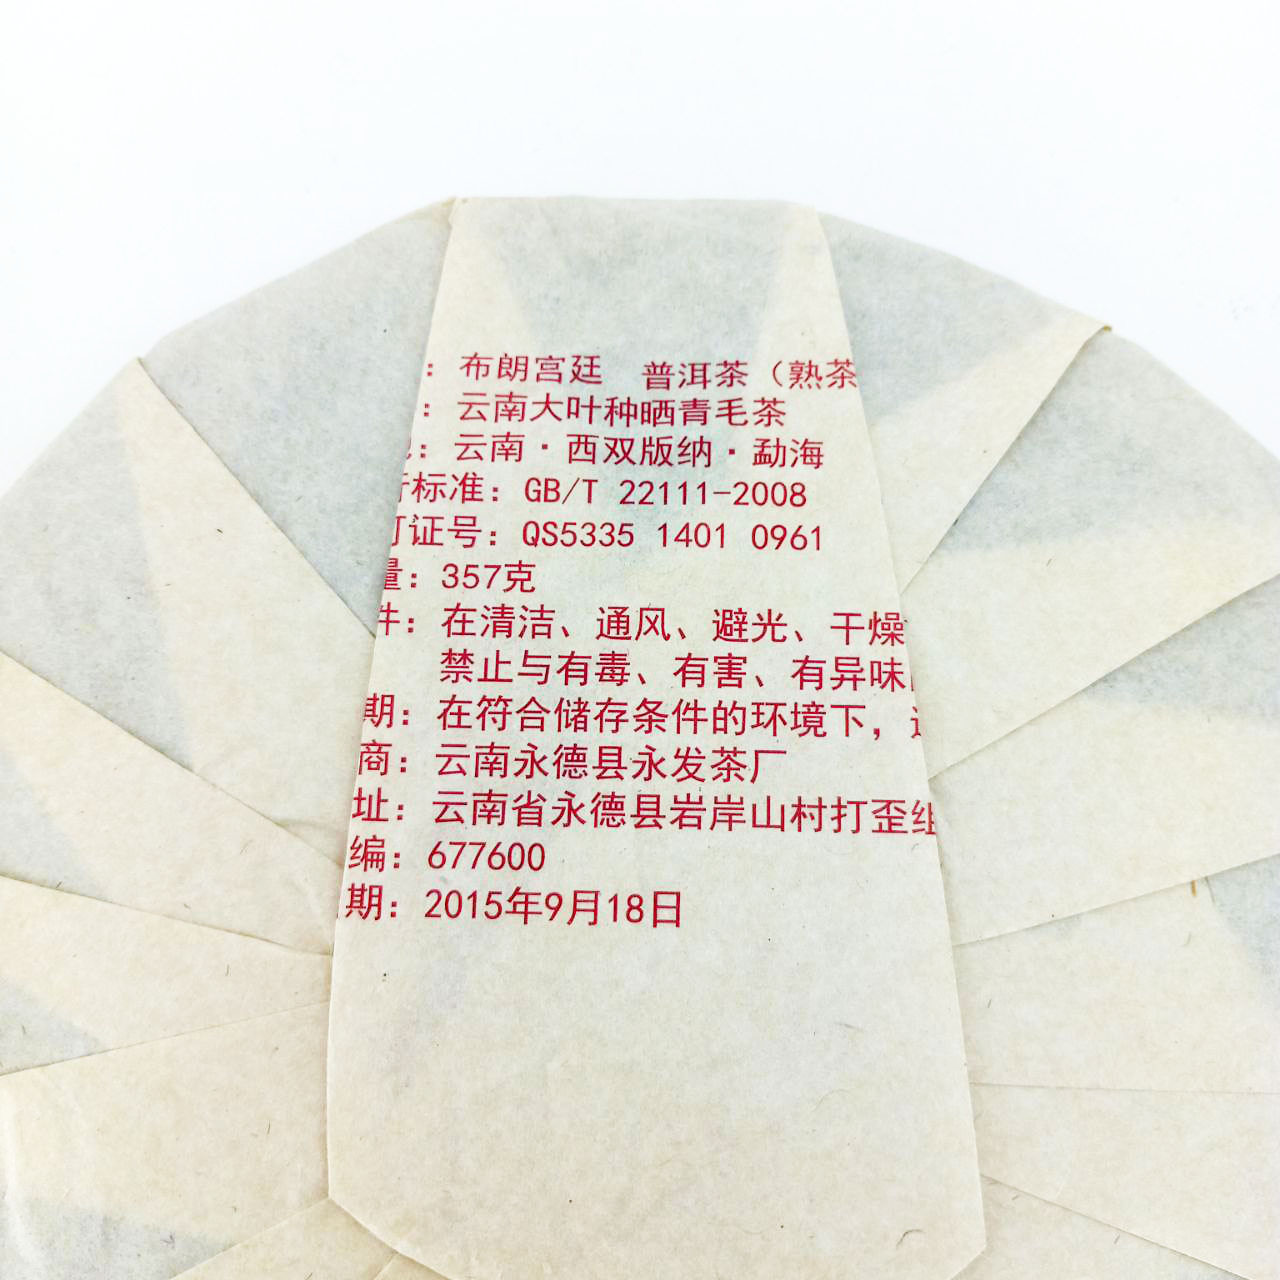 ：布朗宫廷　普洱茶（熟茶
：云南大叶种晒青毛茶
：云南·西双版纳·勐海
标准：GB/T 22111-2008
证号：QS5335 1401 0961
量：357克
件：在清洁、通风、避光、干燥
禁止与有毒、有害、有异味
期：在符合储存条件的环境下，
商：云南永德县永发茶厂
址：云南省永德县岩岸山村打歪组
编：677600
期：2015年9月18日